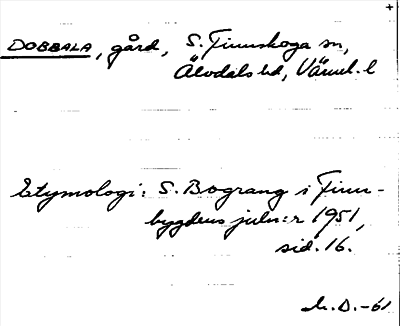 +
DOBBALA, gård, S. Finnskoga sn,
Älvdals hd, Värml. l
Etymologi: S. Bograng i Finn-
bygdens julnr 1951,
sid. 16.
D. -61